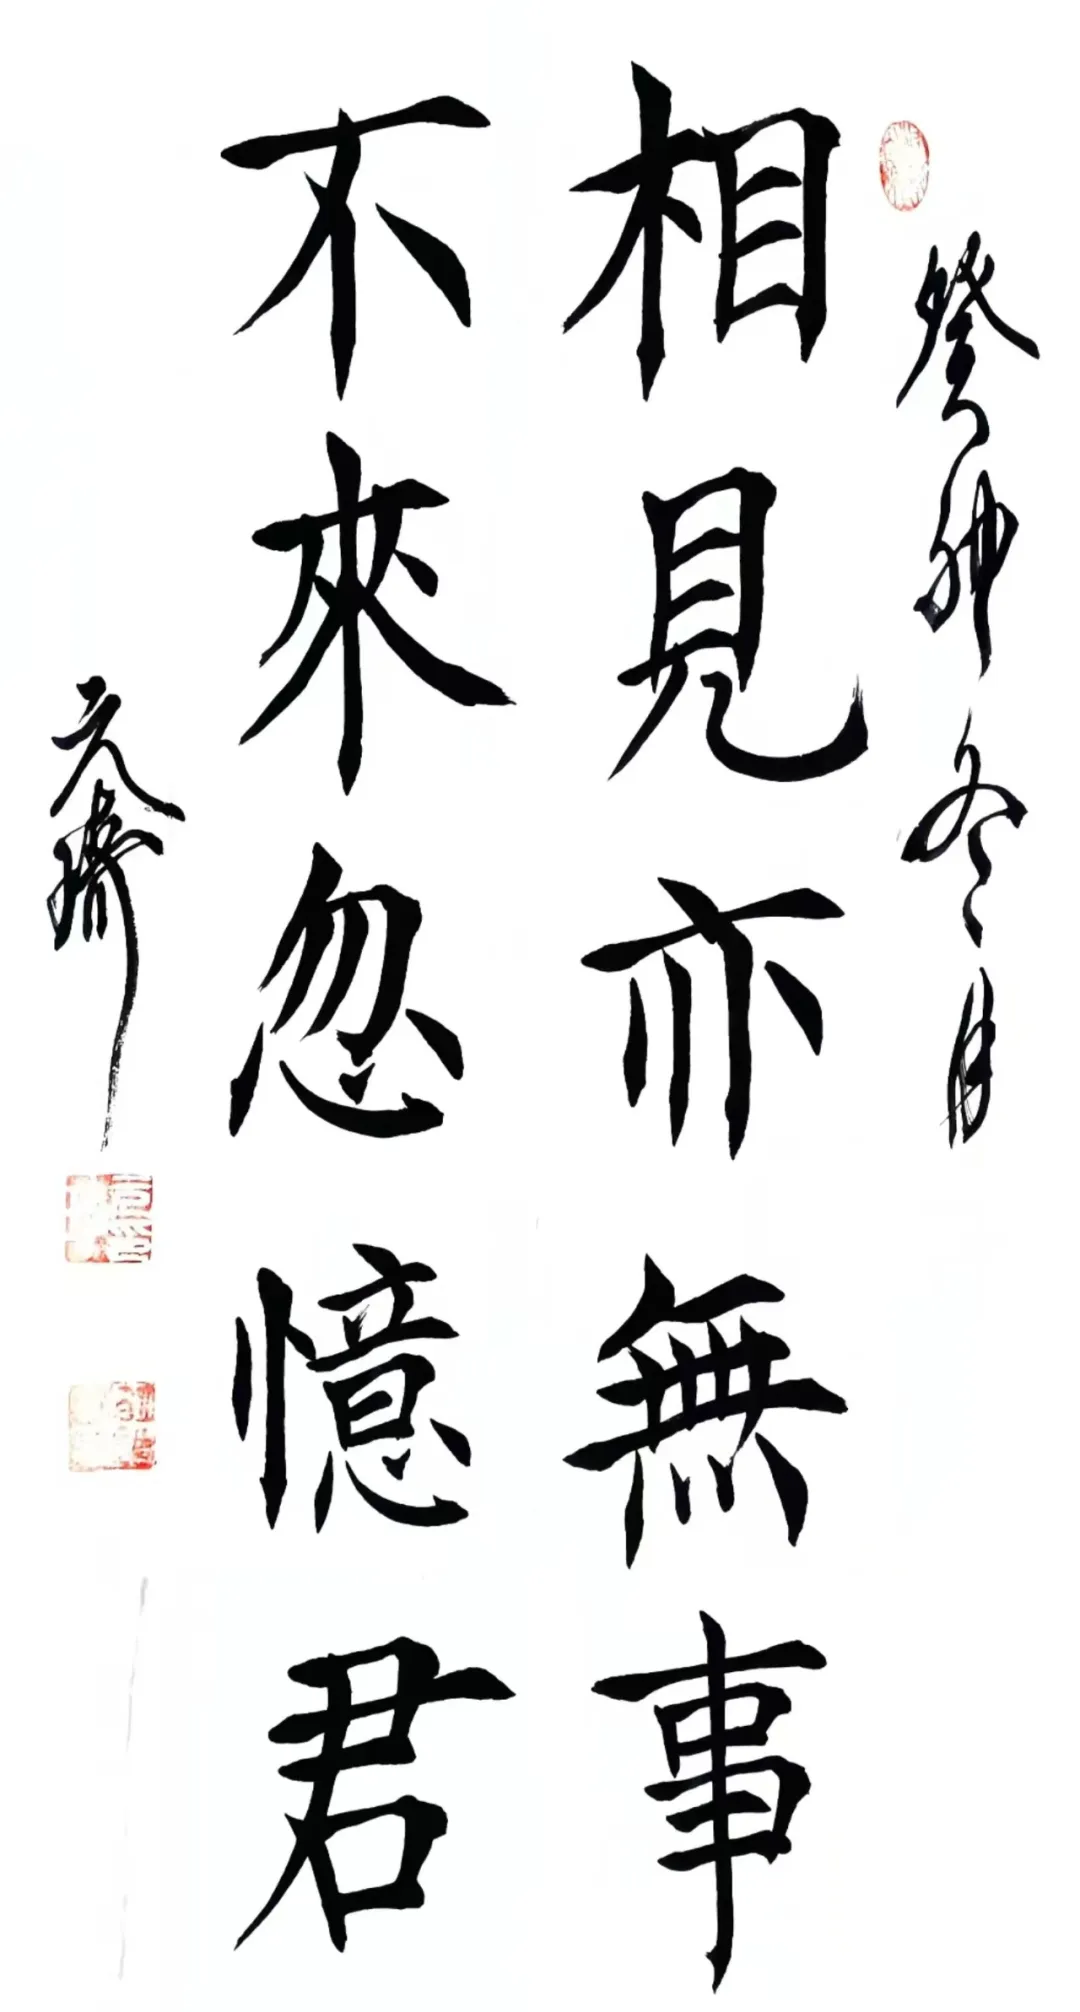 癸卯冬月
相見亦無事
不來忽憶君